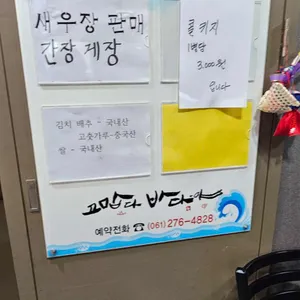 새우장 판매
간장 게장
콜키지
1병당
3,000원
입니다
김치 배추 - 국내산
고춧가루-중국산
쌀 - 국내산
고맙다 바다야
예약전화 ☎ (061) 276-4828